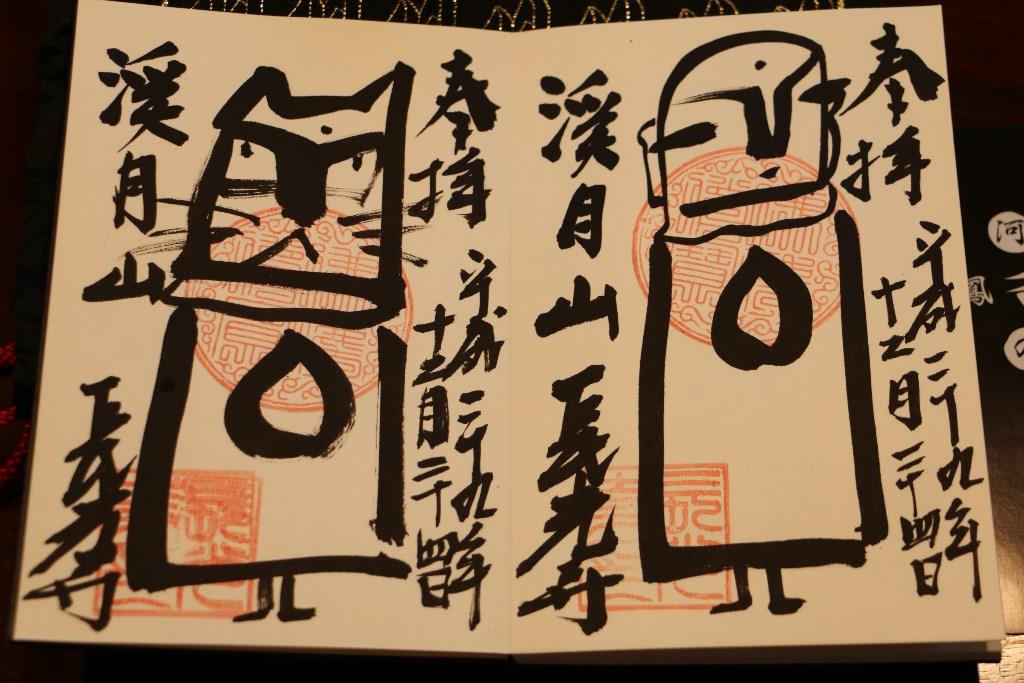 奉拝
平成二十九年
十二月二十四日
渓月山
長光寺
奉拝
平成二十九年
十二月二十四日
渓月山
長光寺
河
鳳